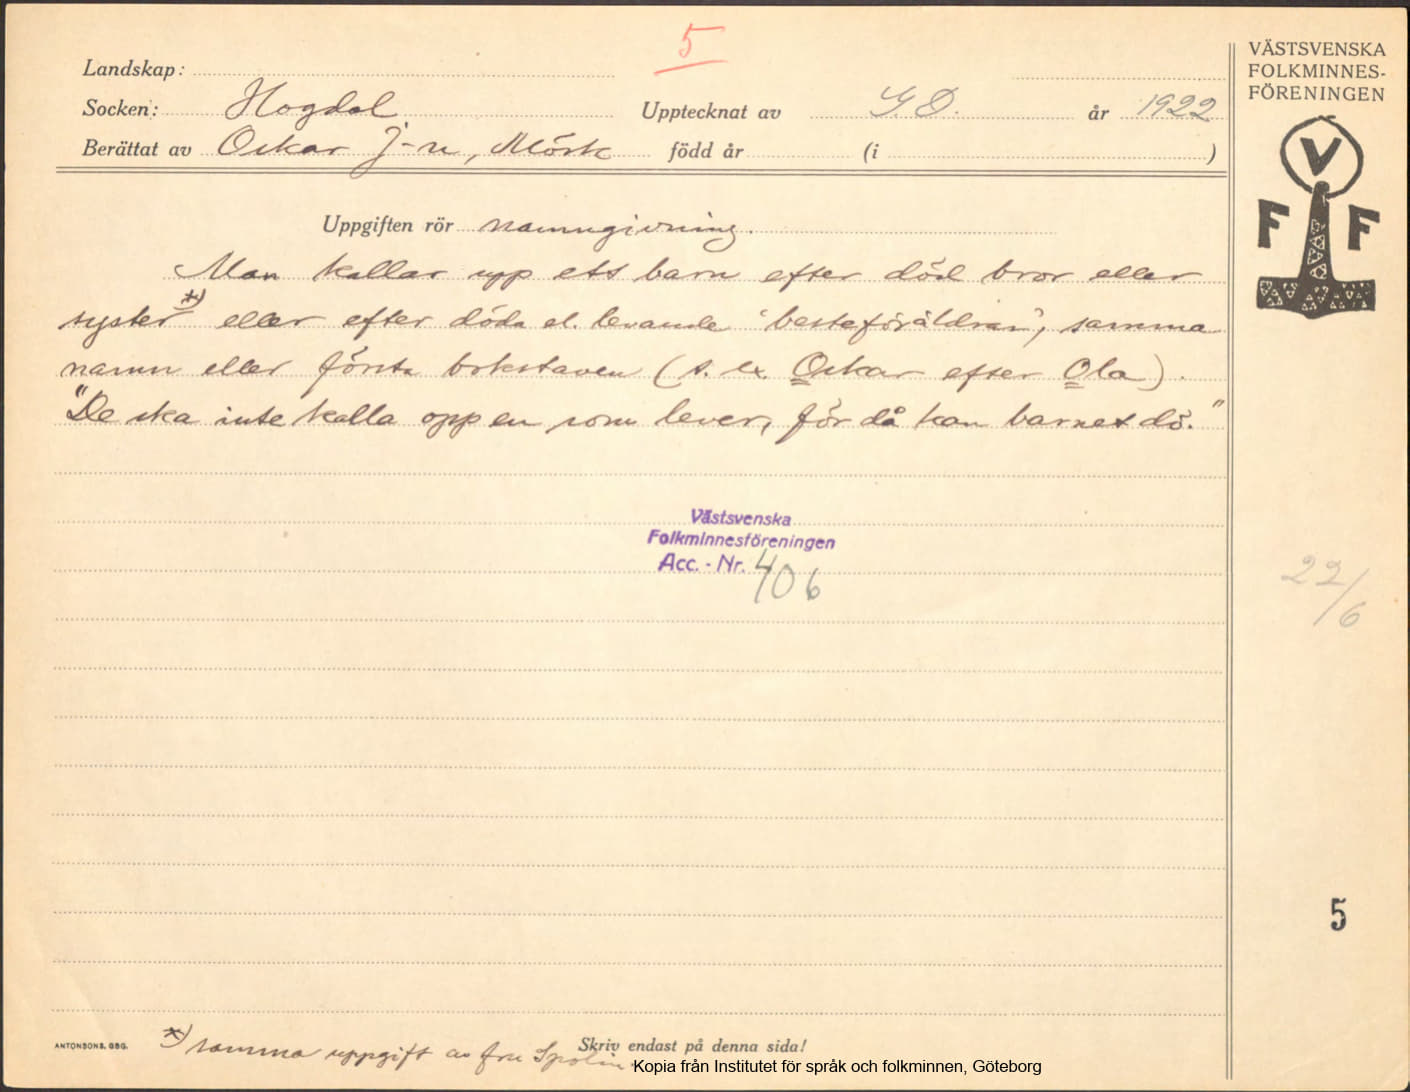 5
Landskap:
Socken: Hogdal
Upptecknat av G. D. år 1922
Berättat av Oskar J-n, Mörk född år (i )
VÄSTSVENSKA
FOLKMINNES-
FÖRENINGEN
V
F F
Uppgiften rör namngivning.
Man kallar upp ett barn efter död bror eller
syster *) eller efter döda el. levande 'besteföräldrar', samma
namn eller första bokstaven (t. ex. Oskar efter Ola).
"De ska inte kalla opp en som lever, för då kan barnet dö."
Västsvenska
Folkminnesföreningen
Acc. - Nr. 406
22/6
5
ANTONSONS, GBG.
*) samma uppgift av fru Spolin.
Skriv endast på denna sida!
Kopia från Institutet för språk och folkminnen, Göteborg